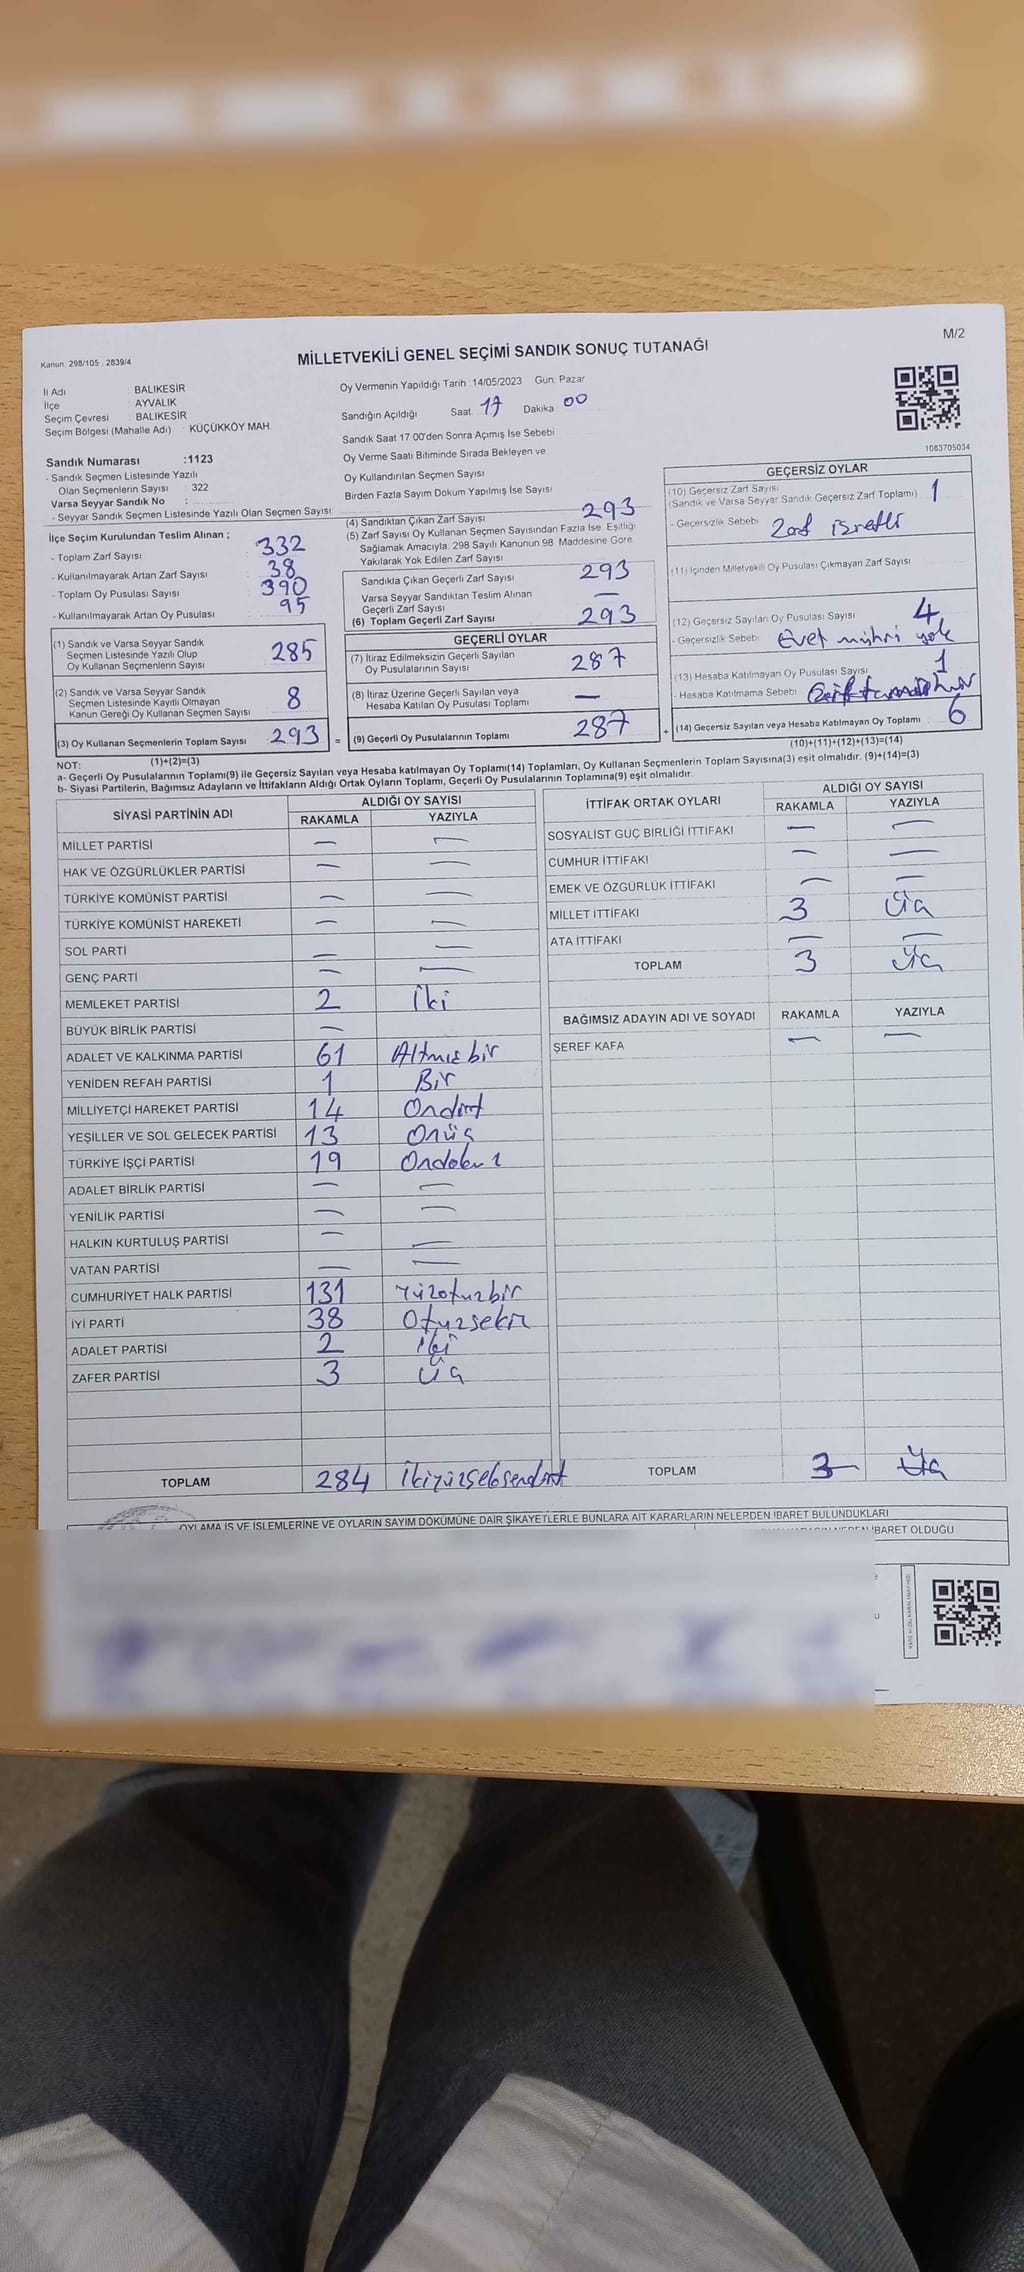 M/2
MİLLETVEKİLİ GENEL SEÇİMİ SANDIK SONUÇ TUTANAĞI
Kanun: 298/105 . 2839/4
İl Adı : BALIKESİR
İlçe : AYVALIK
Seçim Çevresi : BALIKESİR
Seçim Bölgesi (Mahalle Adı) KÜÇÜKKÖY MAH.
Sandık Numarası :1123
- Sandık Seçmen Listesinde Yazılı
Olan Seçmenlerin Sayısı : 322
Varsa Seyyar Sandık No :
- Seyyar Sandık Seçmen Listesinde Yazılı Olan Seçmen Sayısı:
Oy Vermenin Yapıldığı Tarih 14/05/2023 Gün. Pazar
Sandığın Açıldığı Saat 17 Dakika 00
Sandık Saat 17:00'den Sonra Açımış İse Sebebi
Oy Verme Saati Bitiminde Sırada Bekleyen ve
Oy Kullandırılan Seçmen Sayısı
Birden Fazla Sayım Döküm Yapılmış İse Sayısı
1083705034
İlçe Seçim Kurulundan Teslim Alınan ;
- Toplam Zarf Sayısı 332
- Kullanılmayarak Artan Zarf Sayısı 38
- Toplam Oy Pusulası Sayısı 390
- Kullanılmayarak Artan Oy Pusulası 95
(1) Sandık ve Varsa Seyyar Sandık
Seçmen Listesinde Yazılı Olup
Oy Kullanan Seçmenlerin Sayısı 285
(2) Sandık ve Varsa Seyyar Sandık
Seçmen Listesinde Kayıtlı Olmayan
Kanun Gereği Oy Kullanan Seçmen Sayısı 8
(3) Oy Kullanan Seçmenlerin Toplam Sayısı 293 =
(4) Sandıktan Çıkan Zarf Sayısı 293
(5) Zarf Sayısı Oy Kullanan Seçmen Sayısından Fazla İse, Eşitliği
Sağlamak Amacıyla, 298 Sayılı Kanunun 98. Maddesine Göre
Yakılarak Yok Edilen Zarf Sayısı
Sandıkta Çıkan Geçerli Zarf Sayısı 293
Varsa Seyyar Sandıktan Teslim Alınan
Geçerli Zarf Sayısı —
(6) Toplam Geçerli Zarf Sayısı 293
GEÇERLİ OYLAR
(7) İtiraz Edilmeksizin Geçerli Sayılan
Oy Pusulalarının Sayısı 287
(8) İtiraz Üzerine Geçerli Sayılan veya
Hesaba Katılan Oy Pusulası Toplamı —
(9) Geçerli Oy Pusulalarının Toplamı 287 +
GEÇERSİZ OYLAR
(10) Geçersiz Zarf Sayısı
(Sandık ve Varsa Seyyar Sandık Geçersiz Zarf Toplamı) 1
- Geçersizlik Sebebi Zarf
(11) İçinden Milletvekili Oy Pusulası Çıkmayan Zarf Sayısı
(12) Geçersiz Sayılan Oy Pusulası Sayısı 4
- Geçersizlik Sebebi Evet mührü yok
(13) Hesaba Katılmayan Oy Pusulası Sayısı 1
- Hesaba Katılmama Sebebi
(14) Geçersiz Sayılan veya Hesaba Katılmayan Oy Toplamı 6
NOT: (1)+(2)=(3)
(10)+(11)+(12)+(13)=(14)
a- Geçerli Oy Pusulalarının Toplamı(9) ile Geçersiz Sayılan veya Hesaba katılmayan Oy Toplamı(14) Toplamları, Oy Kullanan Seçmenlerin Toplam Sayısına(3) eşit olmalıdır. (9)+(14)=(3)
b- Siyasi Partilerin, Bağımsız Adayların ve İttifakların Aldığı Ortak Oyların Toplamı, Geçerli Oy Pusulalarının Toplamına(9) eşit olmalıdır.
SİYASİ PARTİNİN ADI ALDIĞI OY SAYISI
RAKAMLA YAZIYLA
MİLLET PARTİSİ — —
HAK VE ÖZGÜRLÜKLER PARTİSİ — —
TÜRKİYE KOMÜNİST PARTİSİ — —
TÜRKİYE KOMÜNİST HAREKETİ — —
SOL PARTİ — —
GENÇ PARTİ — —
MEMLEKET PARTİSİ 2 İki
BÜYÜK BİRLİK PARTİSİ —
ADALET VE KALKINMA PARTİSİ 61 Altmış bir
YENİDEN REFAH PARTİSİ 1 Bir
MİLLİYETÇİ HAREKET PARTİSİ 14 Ondört
YEŞİLLER VE SOL GELECEK PARTİSİ 13 Onüç
TÜRKİYE İŞÇİ PARTİSİ 19 Ondokuz
ADALET BİRLİK PARTİSİ — —
YENİLİK PARTİSİ — —
HALKIN KURTULUŞ PARTİSİ — —
VATAN PARTİSİ — —
CUMHURİYET HALK PARTİSİ 131 Yüzotuzbir
İYİ PARTİ 38 Otuzsekiz
ADALET PARTİSİ 2 İki
ZAFER PARTİSİ 3 Üç
TOPLAM 284 İkiyüzseksendört
İTTİFAK ORTAK OYLARI ALDIĞI OY SAYISI
RAKAMLA YAZIYLA
SOSYALİST GÜÇ BİRLİĞİ İTTİFAKI — —
CUMHUR İTTİFAKI — —
EMEK VE ÖZGÜRLÜK İTTİFAKI — —
MİLLET İTTİFAKI 3 Üç
ATA İTTİFAKI — —
TOPLAM 3 Üç
BAĞIMSIZ ADAYIN ADI VE SOYADI RAKAMLA YAZIYLA
ŞEREF KAFA — —
TOPLAM 3 Üç
OYLAMA İŞ VE İŞLEMLERİNE VE OYLARIN SAYIM DÖKÜMÜNE DAİR ŞİKAYETLERLE BUNLARA AİT KARARLARIN NELERDEN İBARET BULUNDUKLARI
İBARET OLDUĞU